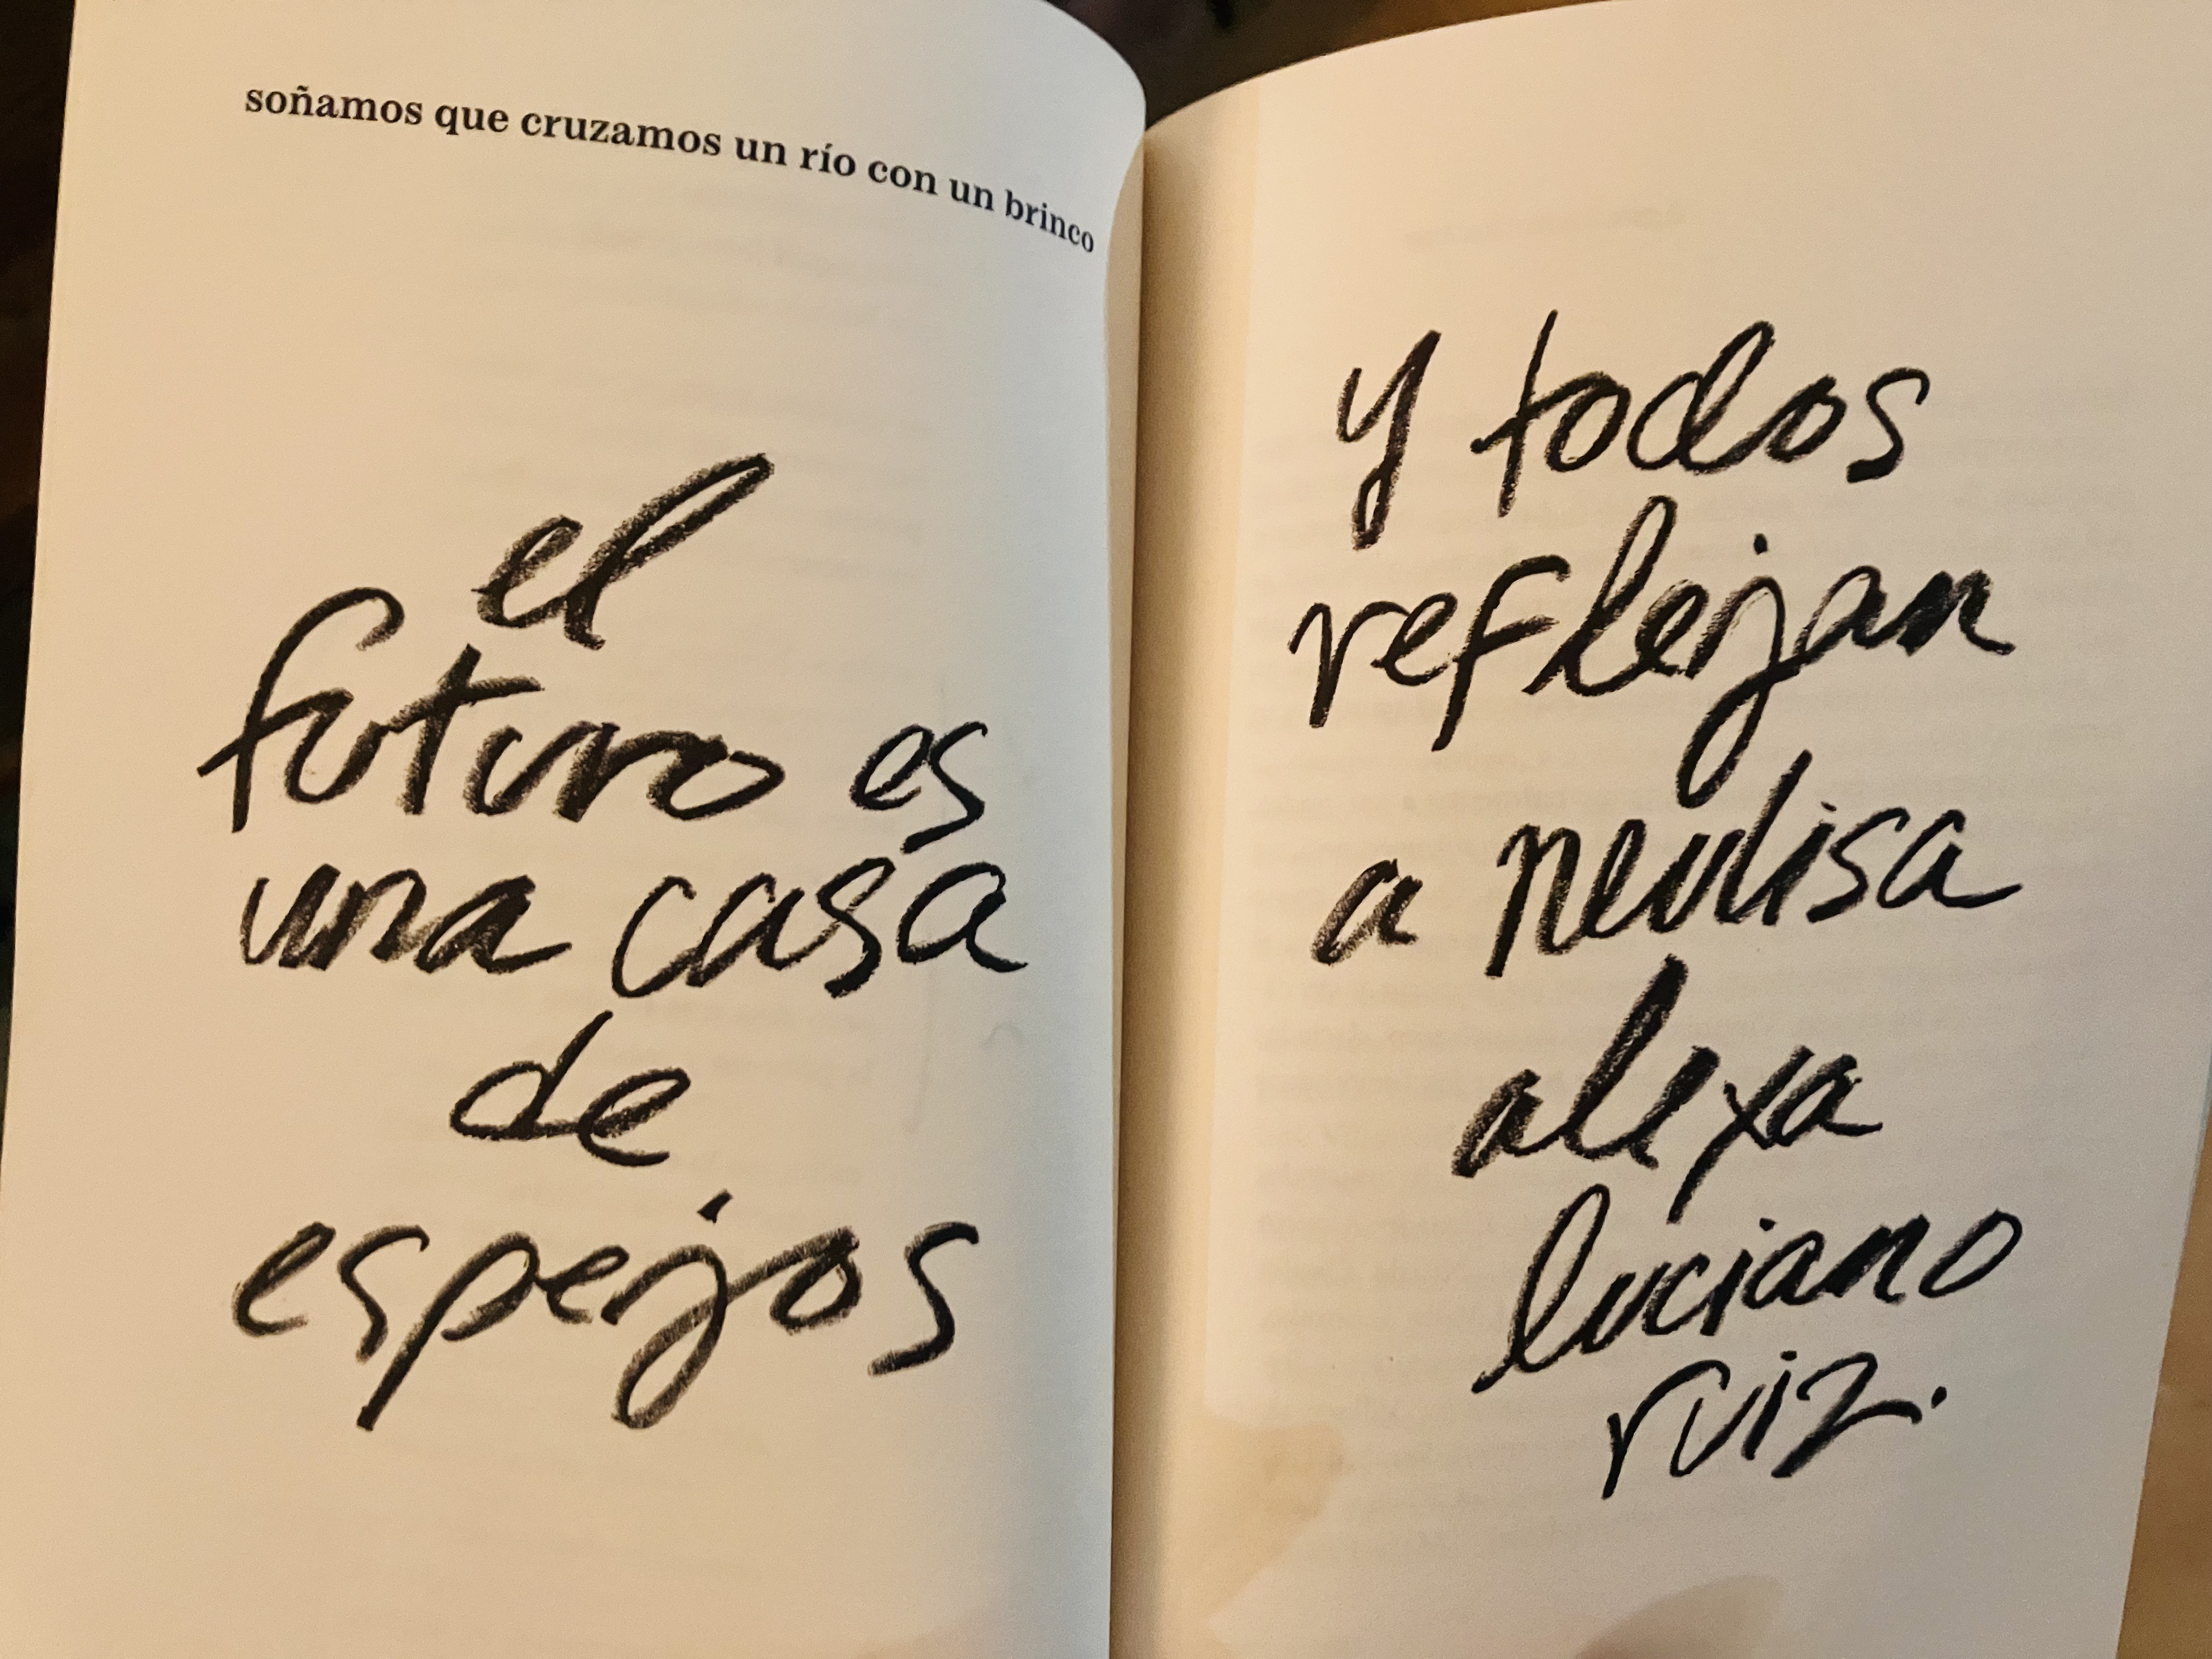 soñamos que cruzamos un río con un brinco
el
futuro es
una casa
de
espejos
y todos
reflejan
a neulisa
alexa
luciano
ruiz.